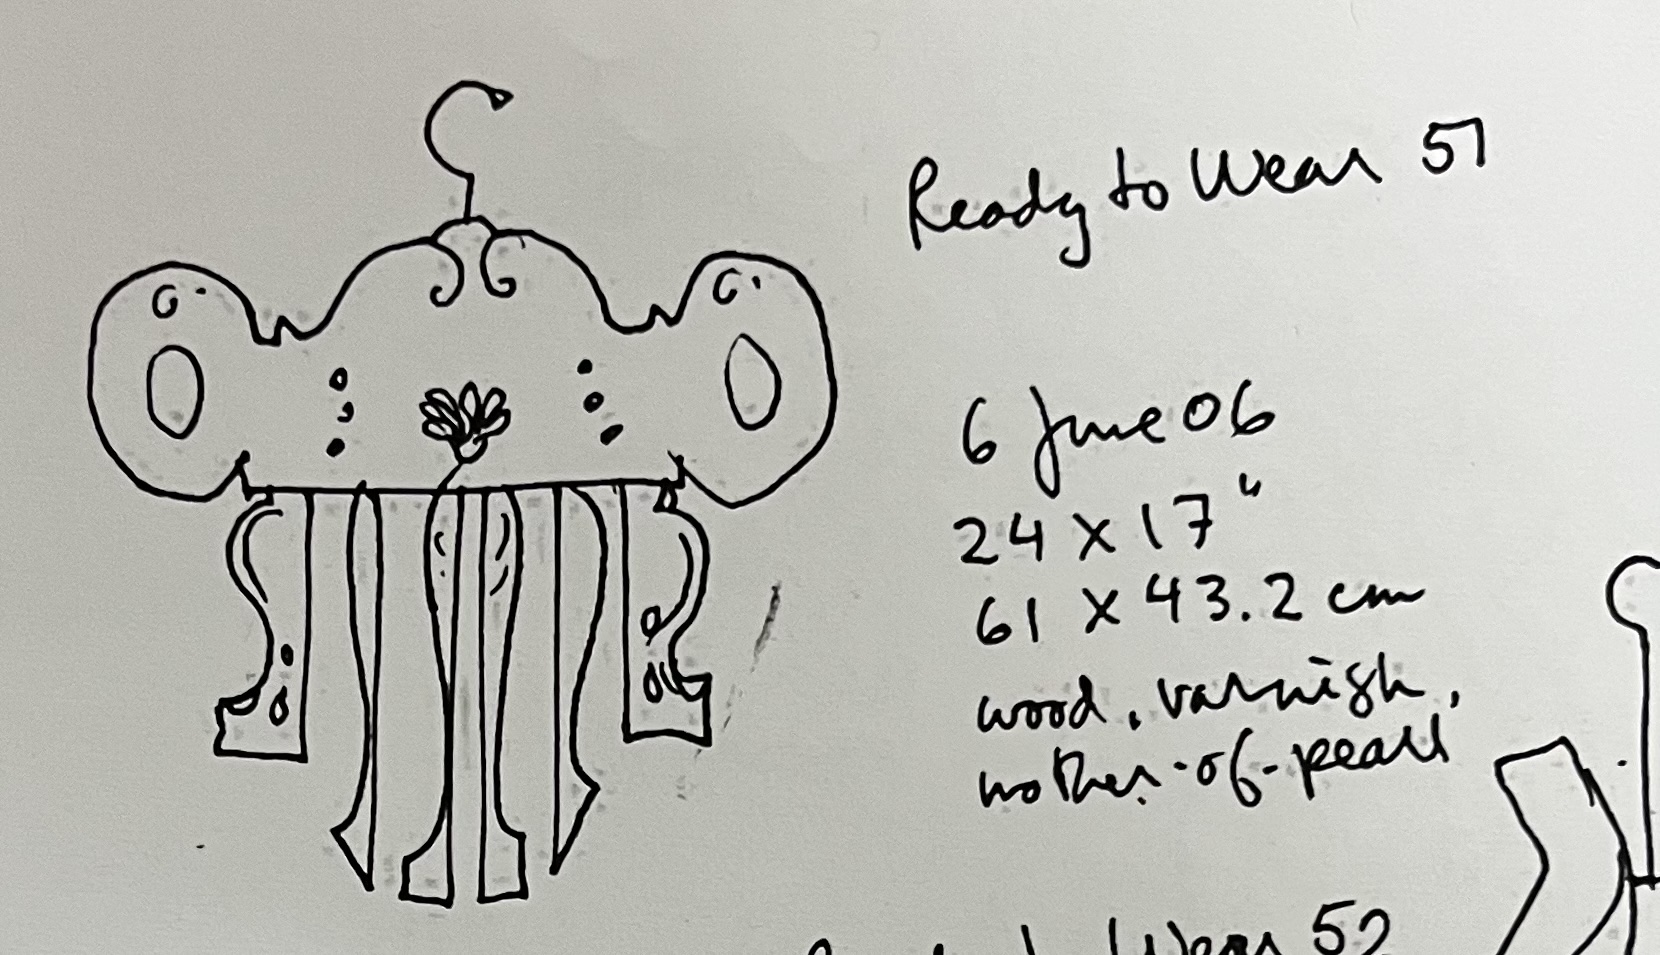 Ready to Wear 51
6 June 06
24 x 17"
61 x 43.2 cm
wood, varnish,
mother-of-pearl
Ready to Wear 52